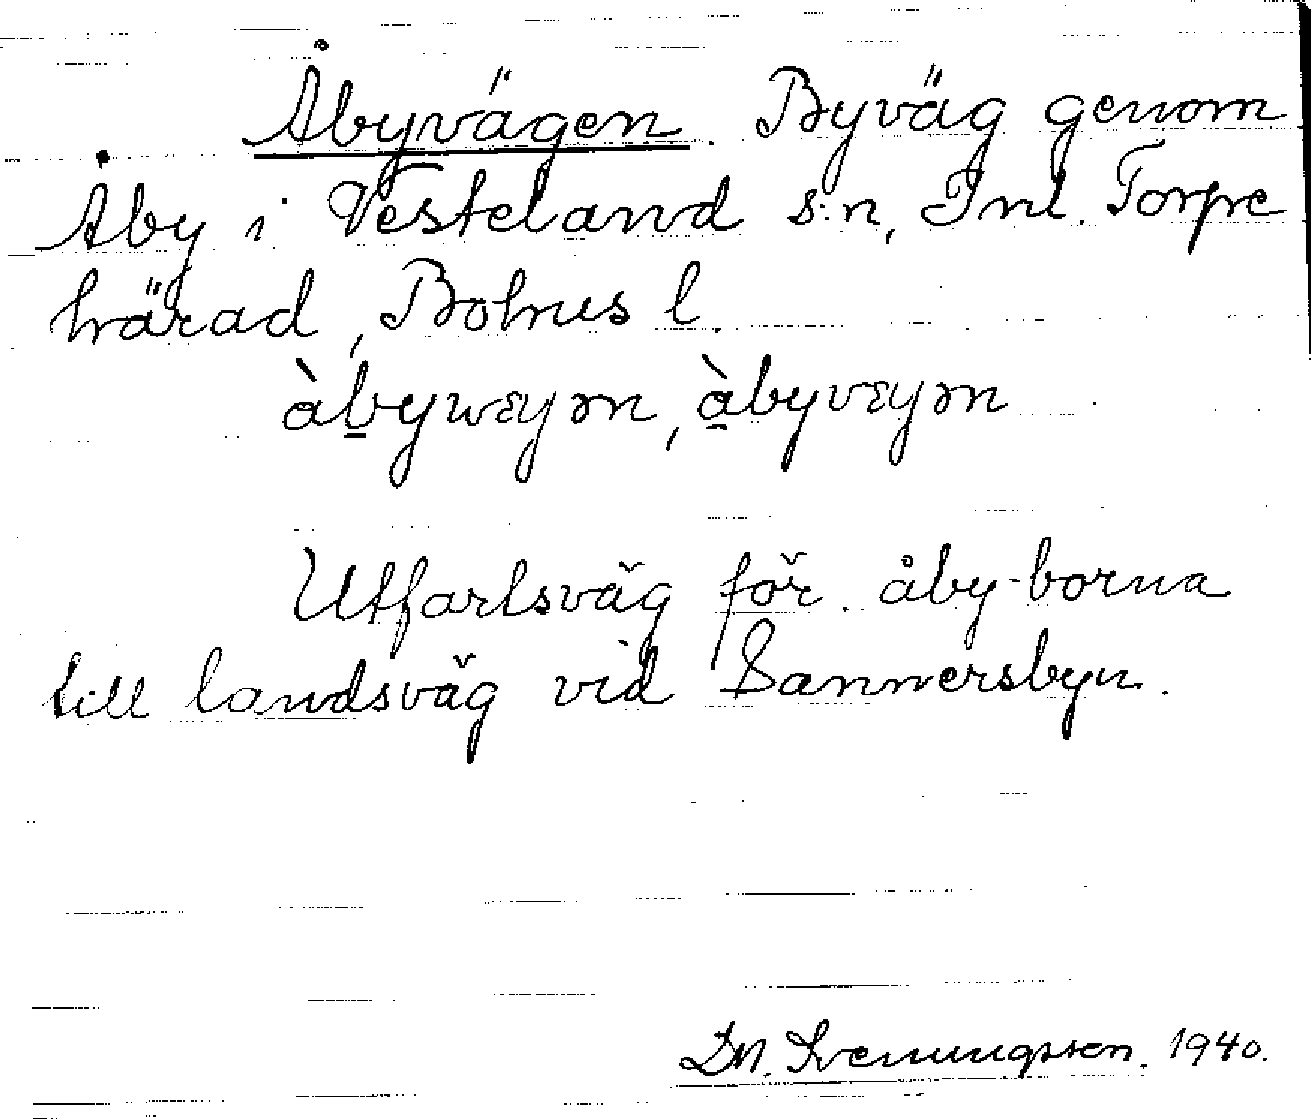 Åbyvägen. Byväg genom
Åby i Vesteland s:n, Inl. Torpe
härad, Bohus l.
àbywɛyən, àbyvɛyən
Utfartsväg för åby-borna
till landsväg vid Sannersbyn.
D.N. Svenungsson. 1940.